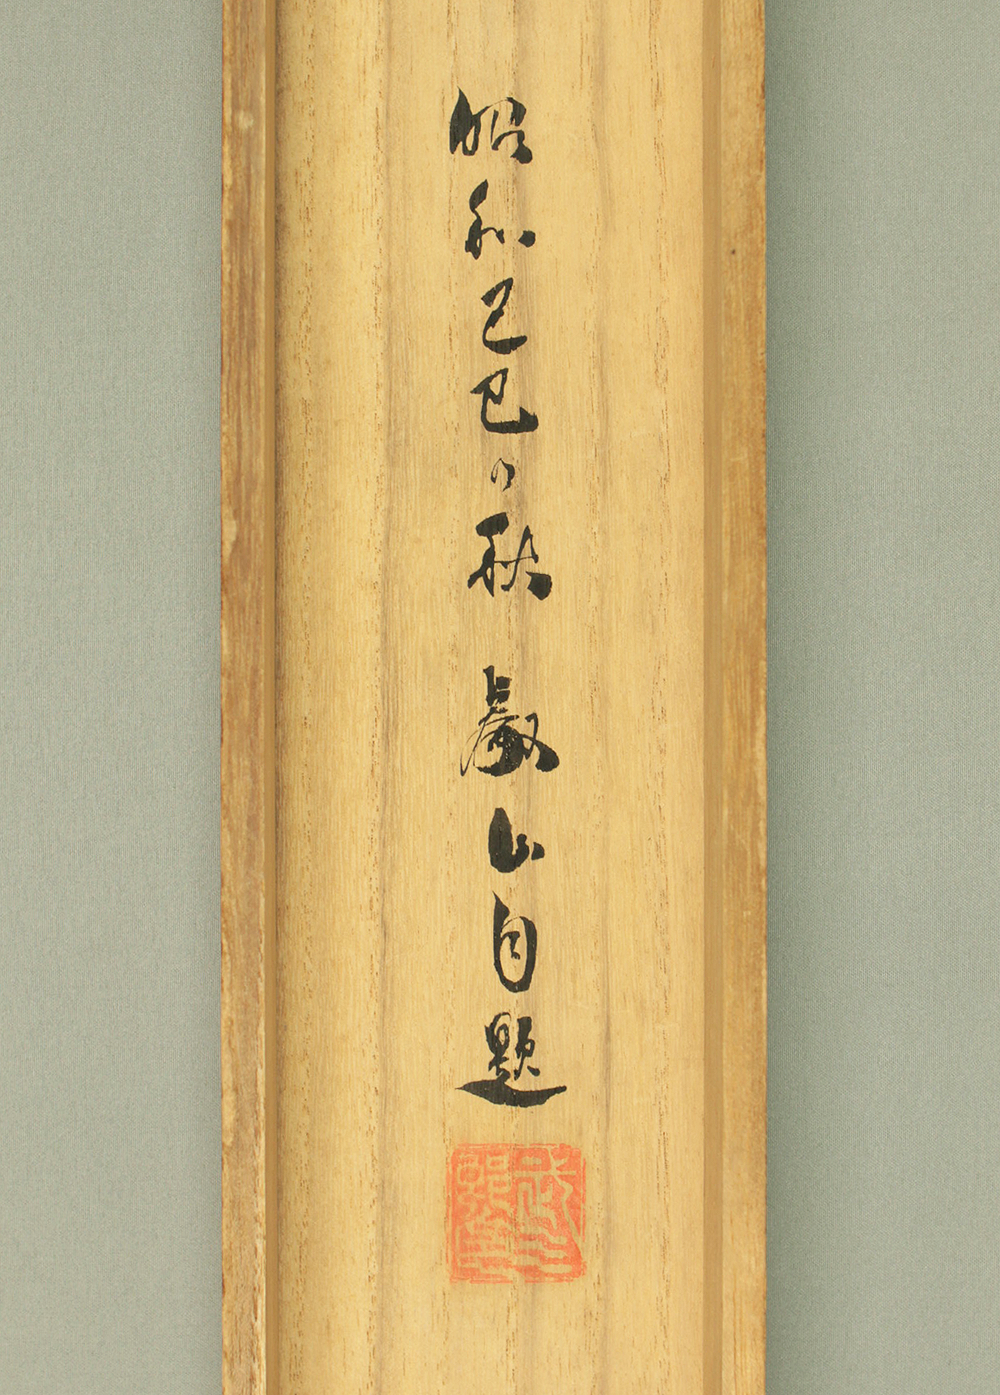 昭和己巳の秋 叡山自題